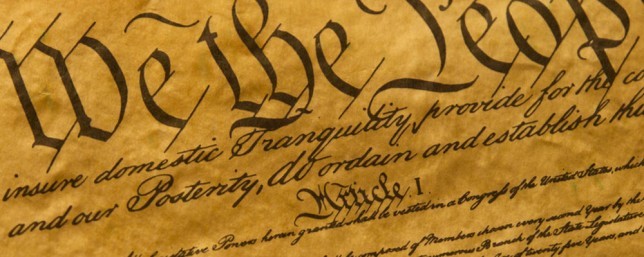 We the Peop
insure domestic Tranquility, provide for the co
and our Posterity, do ordain and establish this
Article. I.
lative Powers herein granted shall be vested in a Congress of the United States, which
composed of Members chosen every second Year by the
numerous Branch of the State Legislature
of twenty five Years, and